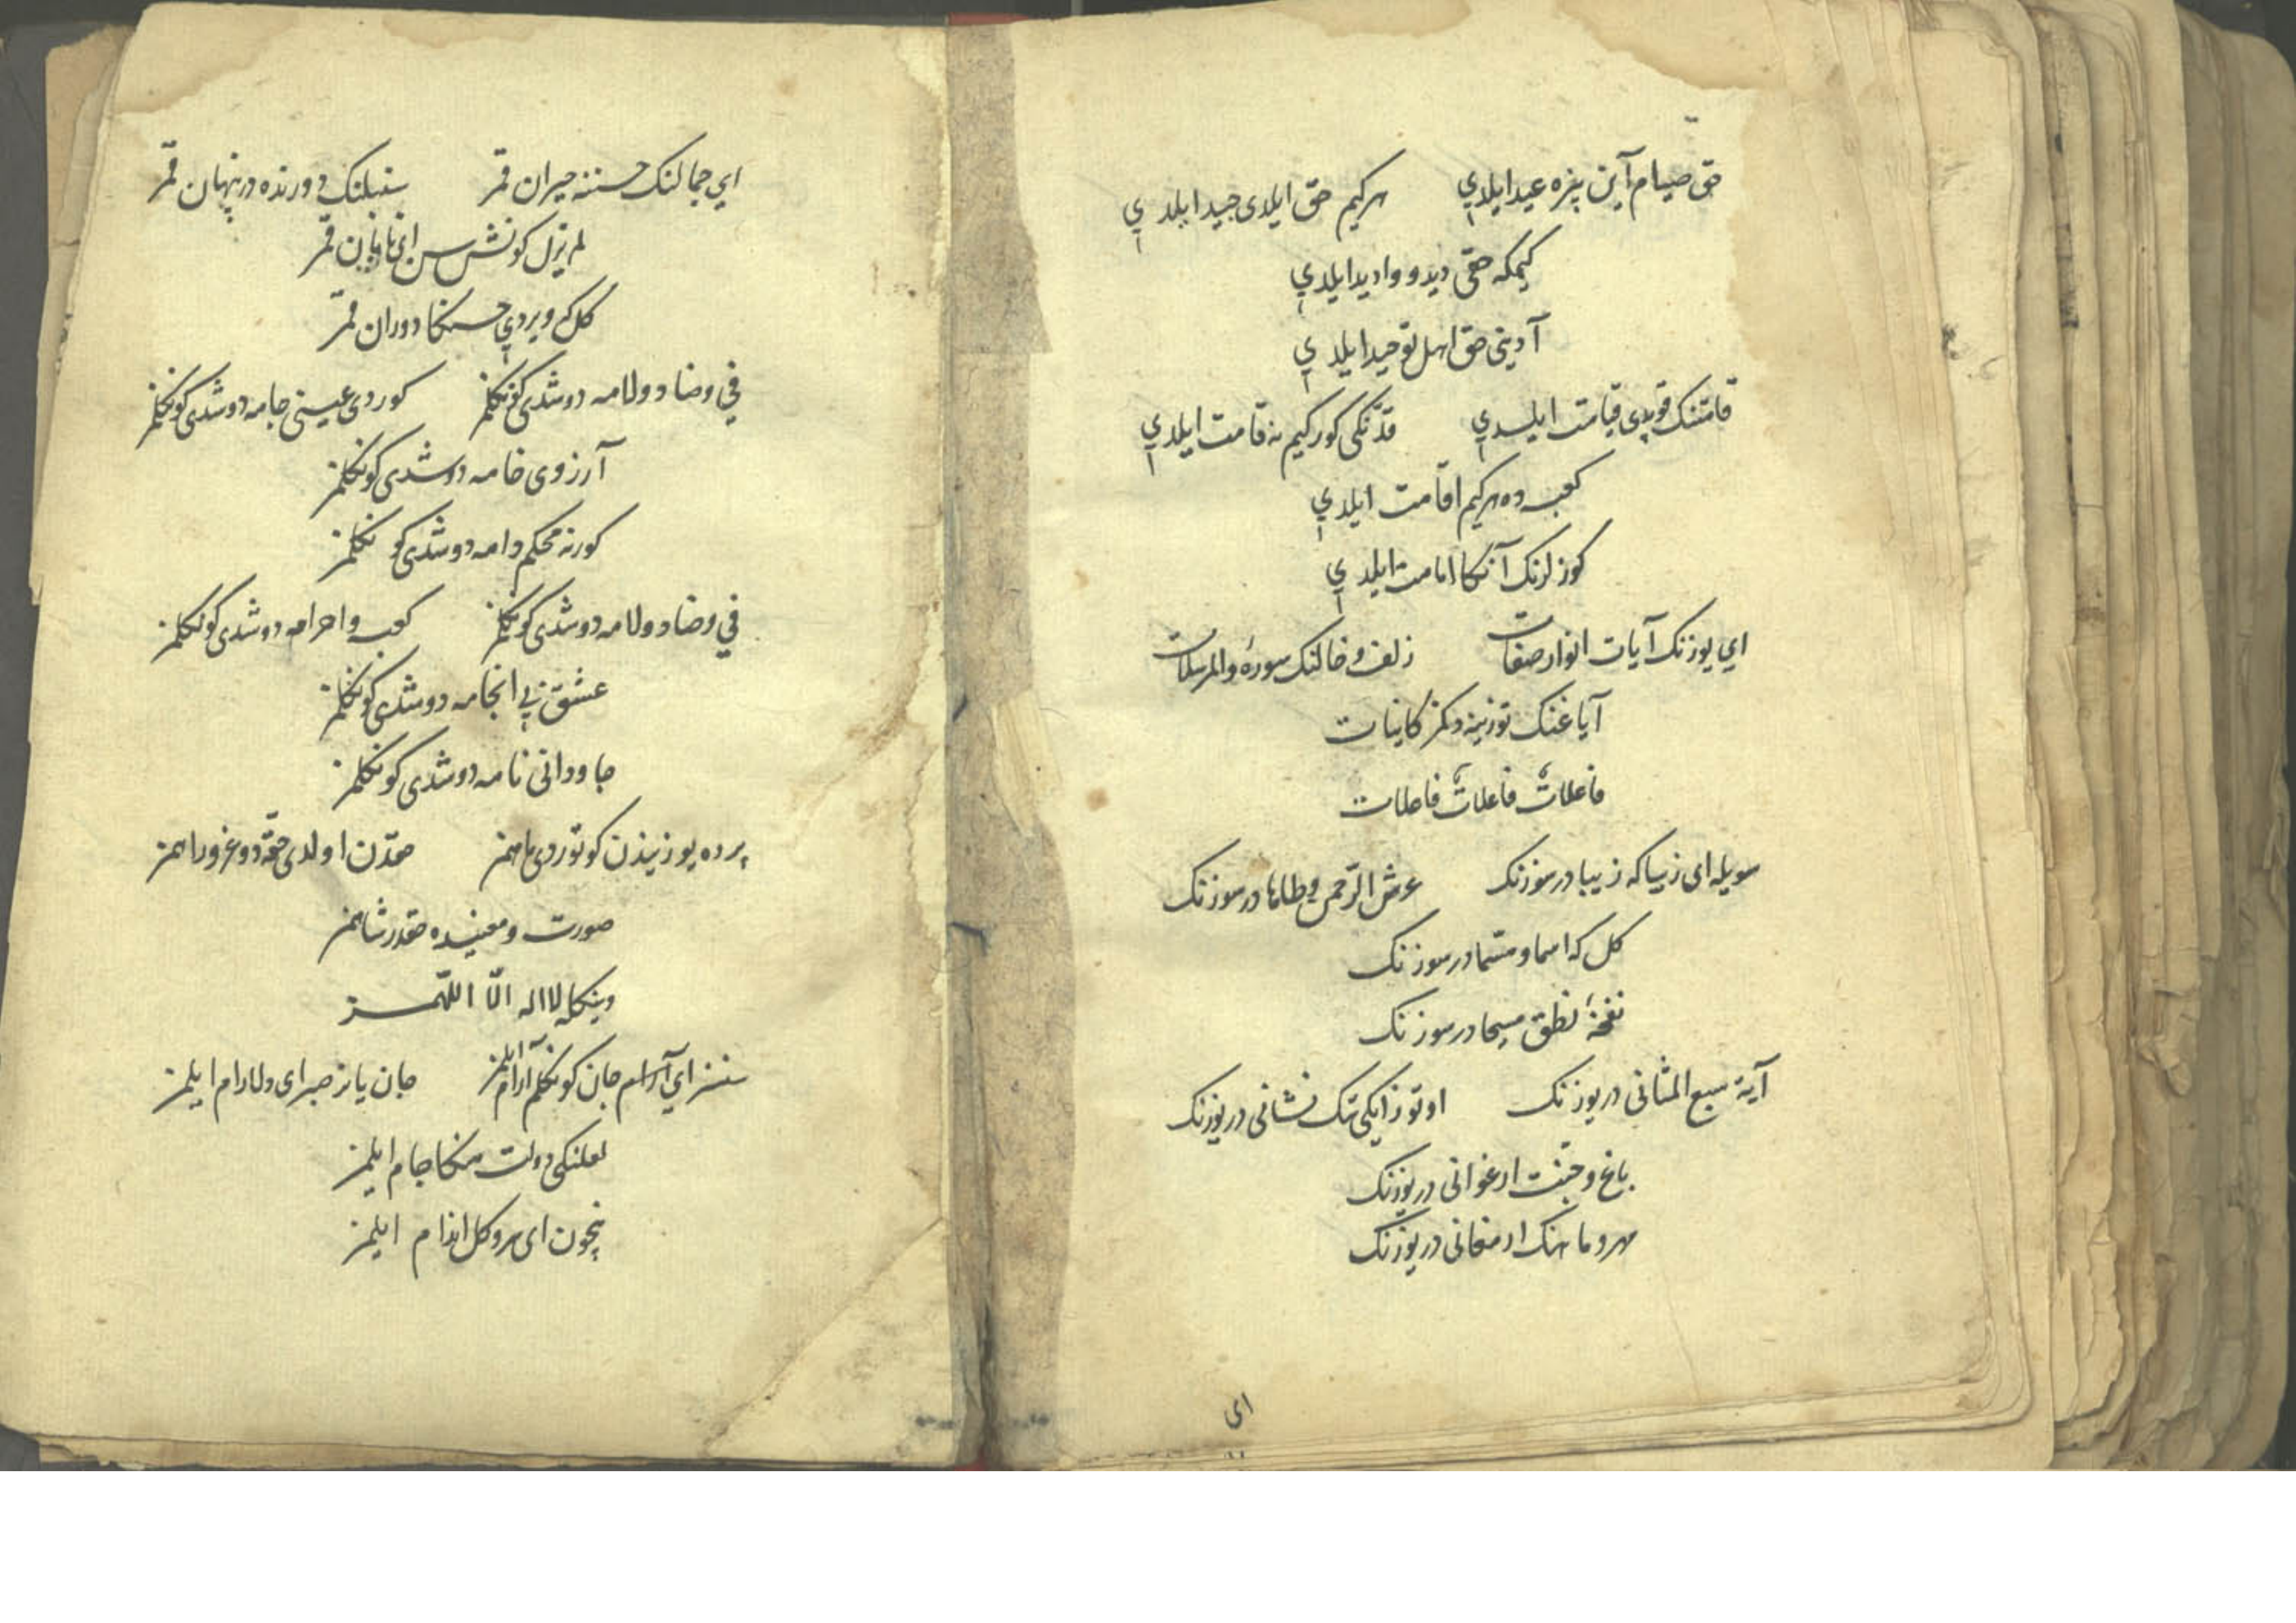 حق صیام آین بزه عید ایلدي هرکیم حق ایلدی جید ایلدي
کیمکه حقی دید و وادید ایلدي
آدینی حق اهل توحید ایلدي
قامتنک قوپدی قیامت ایلدي قدنکی کور کیم نه قامت ایلدي
کعبه ده هرکیم اقامت ایلدي
کوزلرنک آنکا امامت ایلدي
اي یوزنک آیات انوار صفات زلف و خالنک سورهٔ والمرسلات
آیاغنک توزینه دکمز کاینات
فاعلات فاعلات فاعلات
سویله ای زیبا که زیبا در سوزنک عرش الرحمن و طاها در سوزنک
کل که اسما و مسما در سوزنک
نفخهٔ نطق مسیحا در سوزنک
آیة سبع المثانی در یوزنک اوتوز ایکی تک نشانی در یوزنک
باغ و جنت ارغوانی در یوزنک
مهر و ماهنک ارمغانی در یوزنک
ای
اي جمالنک حسننه حیران قمر سنبلنک دورنده در پنهان قمر
لم یزل کونش سن ای تابان قمر
کل که ویردي حسنکا دوران قمر
في وضاد و لامه دوشدی کونکلمز کوردی عینی جامه دوشدی کونکلمز
آرزوی خامه دوشدی کونکلمز
کور نه محکم دامه دوشدی کونکلمز
في وضاد و لامه دوشدی کونکلمز کعبه و احرامه دوشدی کونکلمز
عشق بی انجامه دوشدی کونکلمز
جاودانی نامه دوشدی کونکلمز
پرده یوزیندن کوتوردی ماهمز حقدن اولدی حقه دوغرو راهمز
صورت و معنیده حقدر شاهمز
دینکله لا اله الّا اللّهمز
سنسز اي آرام جان کونکلم آرام ایلمز جان یانر صبر ای دلارام ایلمز
لعلنکی دولت منکا جام ایلمز
نیچون ای سرو کل اندام ایلمز